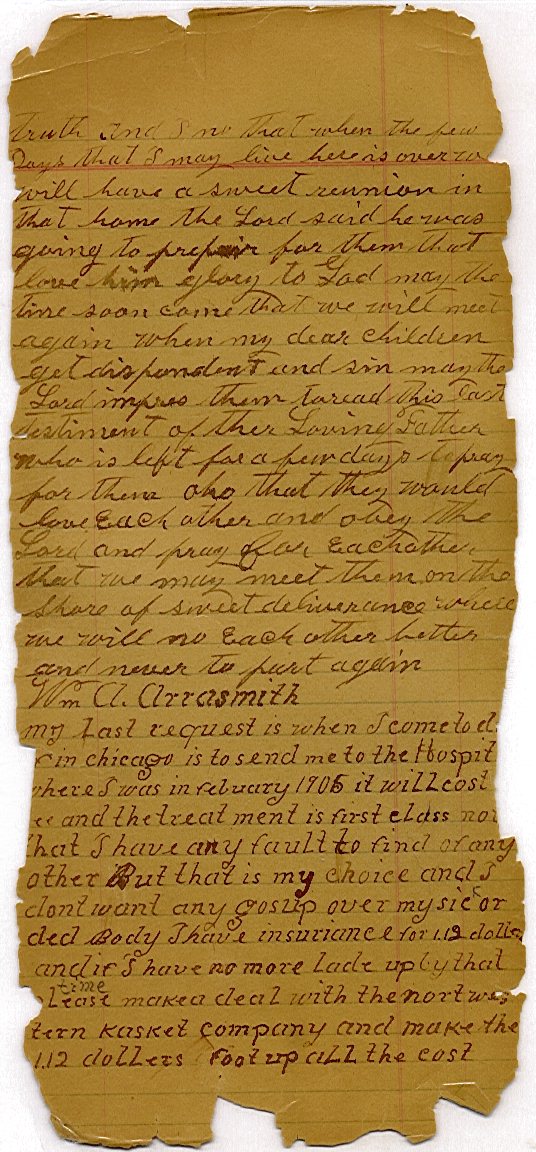 truth and I no that when the few
Days that I may live here is over w
will have a sweet reunion in
that home the Lord said he was
going to prepair for them that
love him glory to God may the
time soon come that we will meet
again when my dear children
get dispondent and sin may the
Lord impres them to read this Last
testiment of ther Loving Father
who is left for a few days to pray
for them oho that they would
love Each other and obey the
Lord and pray for Each other
that we may meet them on the
shore of sweet deliverance where
we will no Each other better
and never to part again
Wm A. Arrasmith
my Last request is when I come to d
in chicago is to send me to the Hospit
where I was in february 1905 it will cost
and the treat ment is first class not
that I have any fault to find of any
other But that is my choice and I
dont want any gosup over my sic or
ded Body I have insuriance for 112 dolle
and if I have no more lade up by that
time
Lease make a deal with the nort wes
tern kasket company and make the
112 dollers foot up all the cost